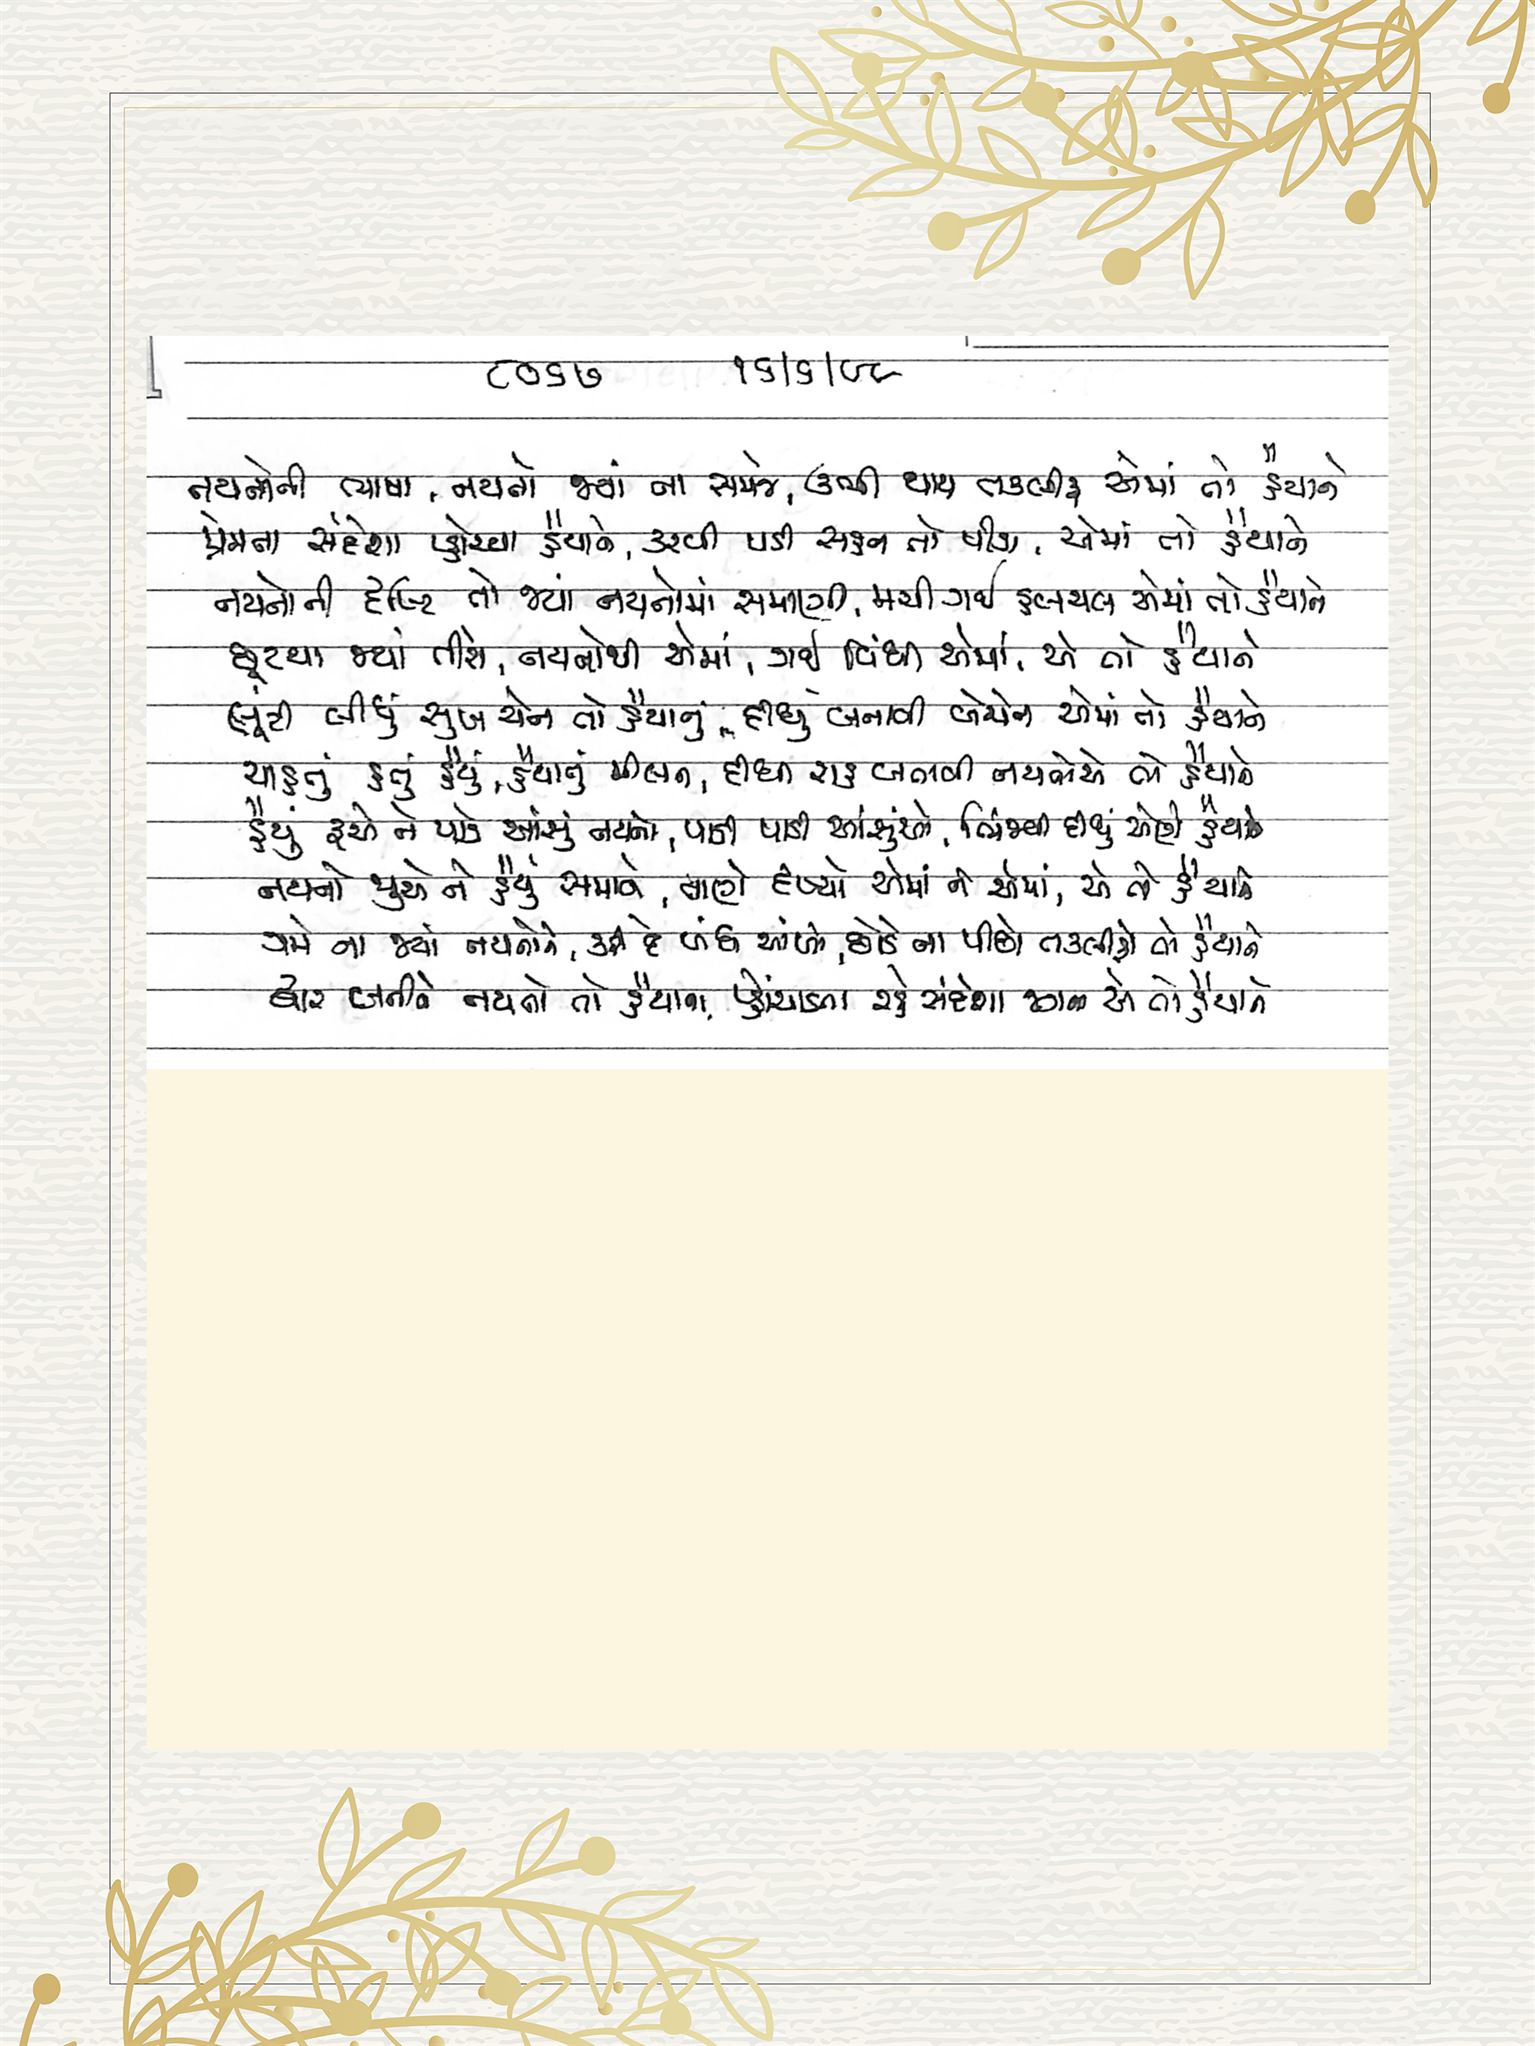 ૮૦૬૭ ૧૬/૬/૯૯
નયનોની ભાષા, નયનો જ્યાં ના સમજે, ઉભી થાય તકલીફ એમાં તો હૈયાને
પ્રેમના સંદેશા પ્હોંચ્યા હૈયાને, કરવી પડી સહન તો પીડા, એમાં તો હૈયાને
નયનોની દૃષ્ટિ તો જ્યાં નયનોમાં સમાણી, મચી ગઈ હલચલ એમાં તો હૈયાને
છૂટયા જ્યાં તીરો, નયનોથી એમાં, ગઈ વિંધી એમાં, એ તો હૈયાને
લૂંટી લીધું સુખ ચેન તો હૈયાનું, દીધું બનાવી બેચેન એમાં તો હૈયાને
ચાહતું હતું હૈયું, હૈયાનું મીલન, દીધી રાહ બતાવી નયનોએ તો હૈયાને
હૈયું રૂએ ને પાડે આંસું નયનો, પાડી પાડી આંસુંઓ, ભિંજવી દીધું એણે હૈયાને
નયનો જુએ ને હૈયું સમાવે, માણે દૃશ્યો એમાં ને એમાં, એ તો હૈયાને
ગમે ના જ્યાં નયનોને, કરી દે બંધ આંખો, છોડે ના પીછો તકલીફો તો હૈયાને
દ્વાર બનીને નયનો તો હૈયાના, પ્હોંચાડતા રહે સંદેશા બધા એ તો હૈયાને